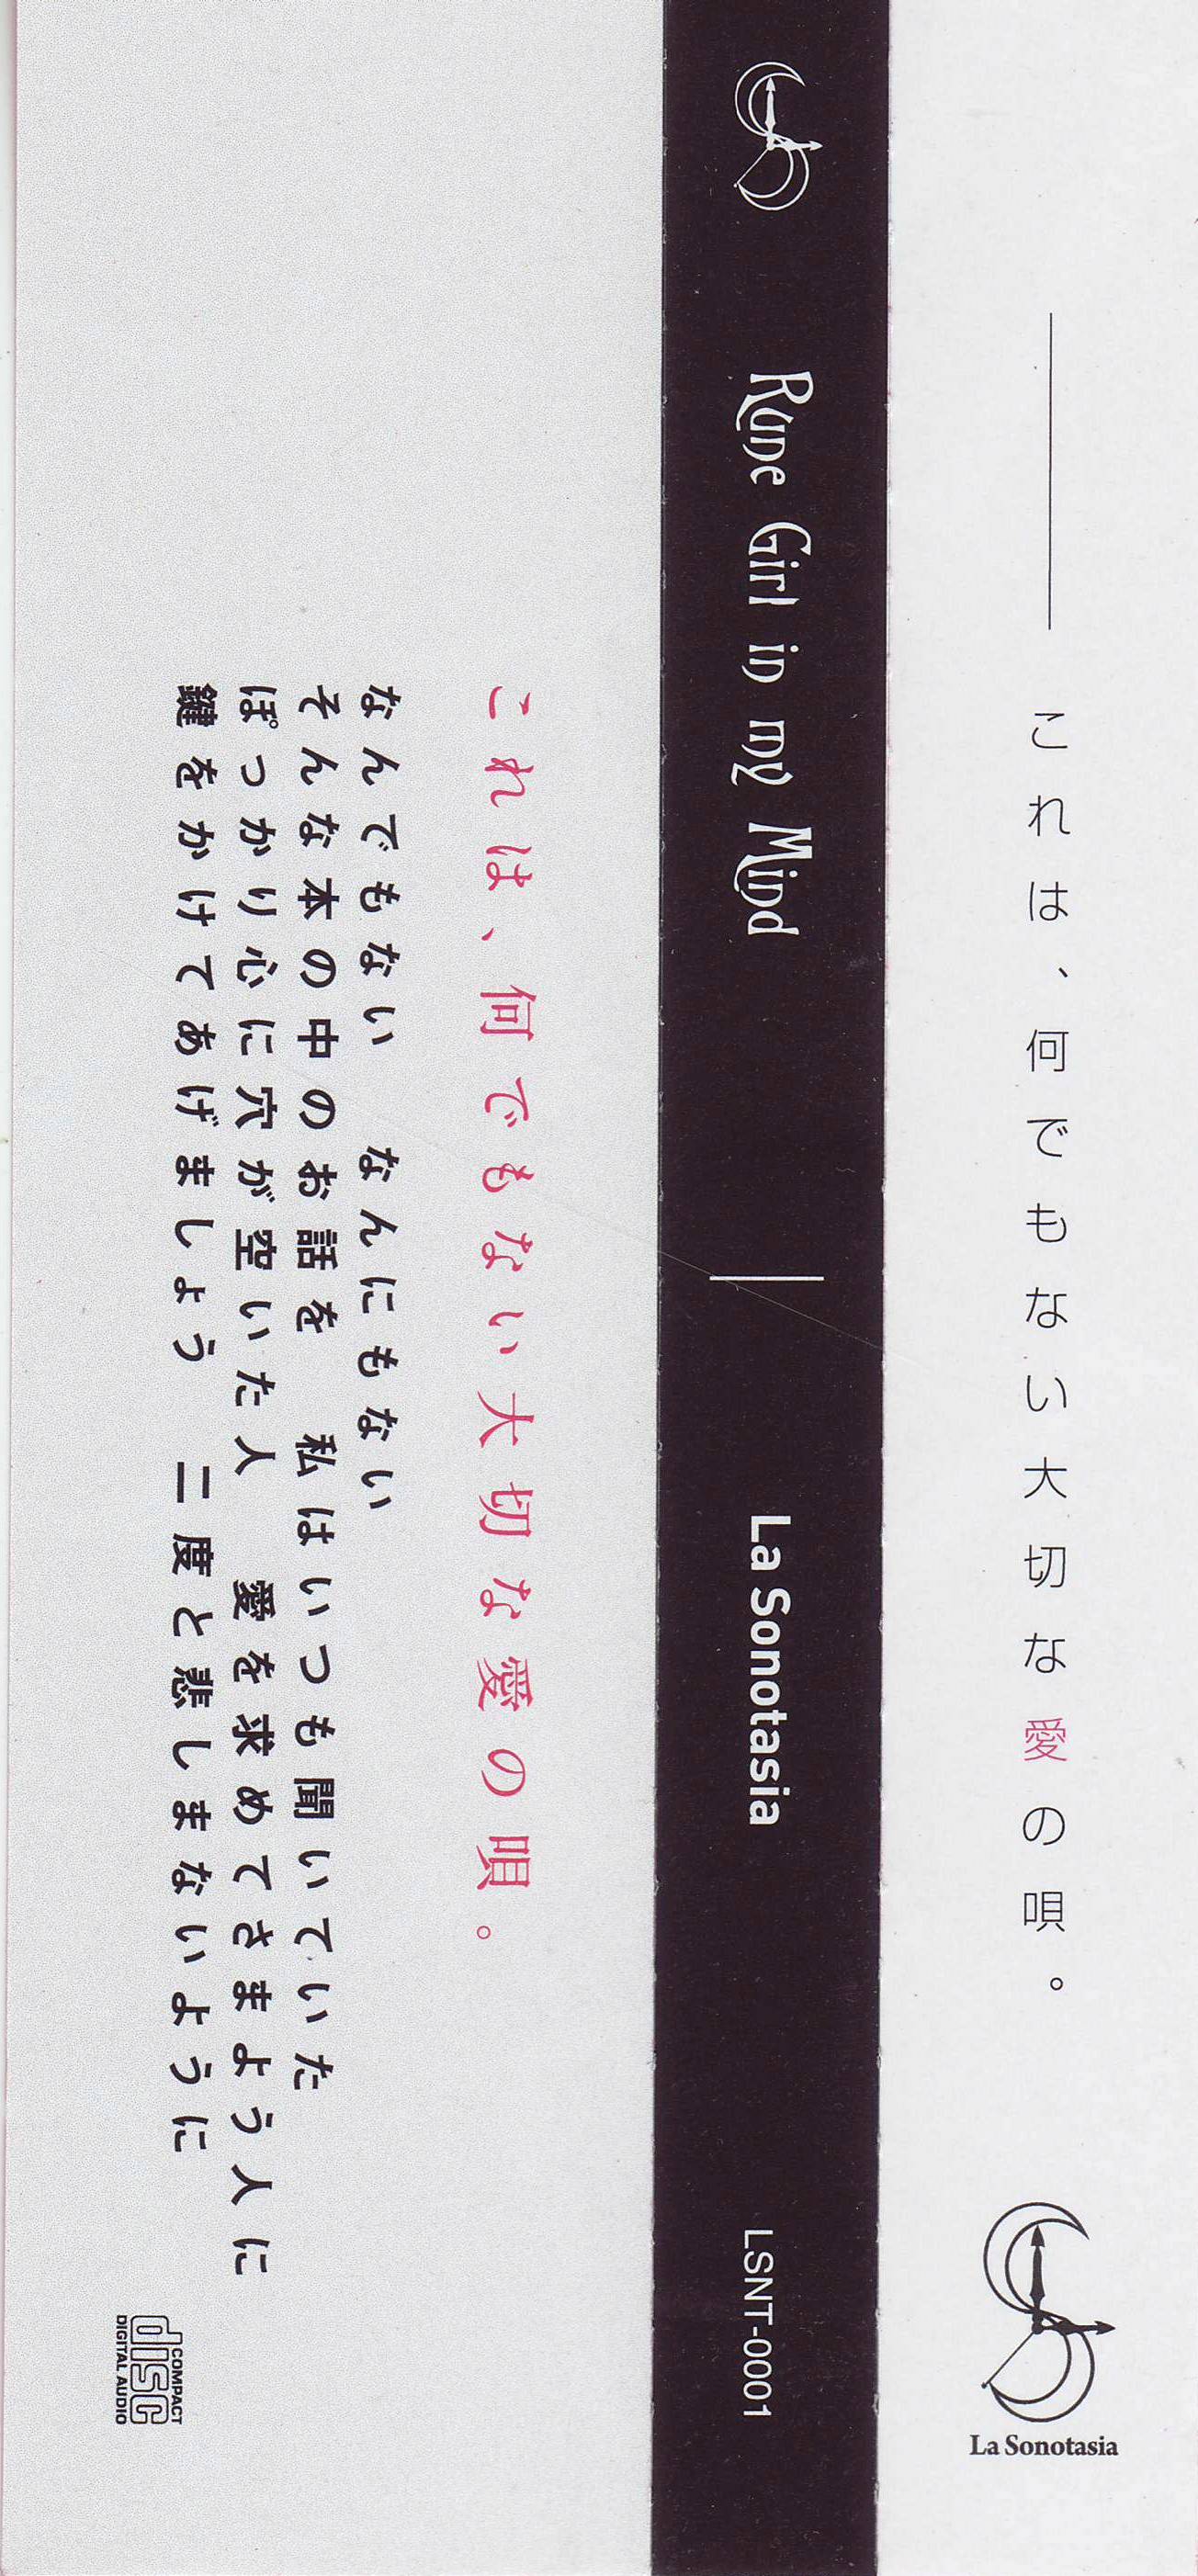 これは、何でもない大切な愛の唄。
La Sonotasia
Rune Girl in my Mind
La Sonotasia
LSNT-0001
これは、何でもない大切な愛の唄。
なんでもない　なんにもない
そんな本の中のお話を　私はいつも聞いていた
ぽっかり心に穴が空いた人　愛を求めてさまよう人に
鍵をかけてあげましょう　二度と悲しまないように
COMPACT
disc
DIGITAL AUDIO